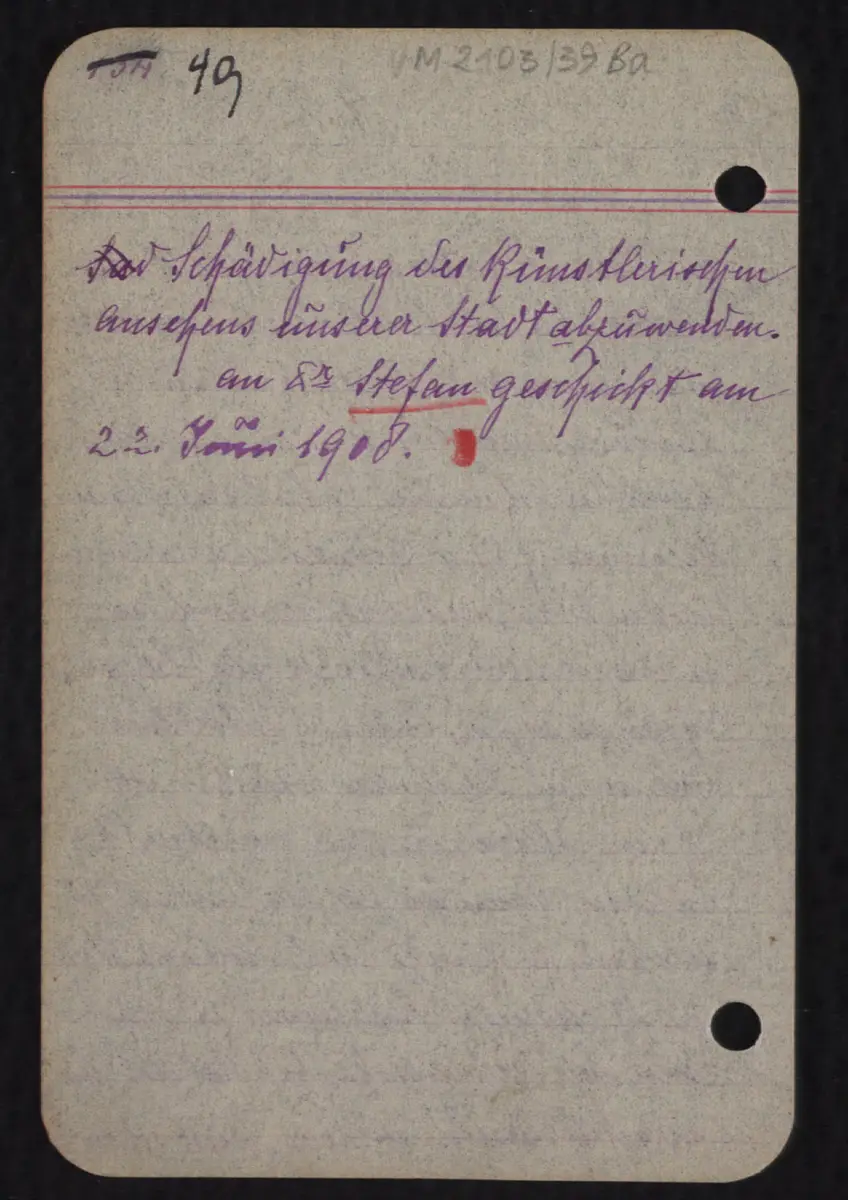 49 VM 2103/39 Ba
Schädigung des künstlerischen
Ansehens unserer Stadt abzuwenden.
an Dr Stefan geschickt am
22. Juni 1908.